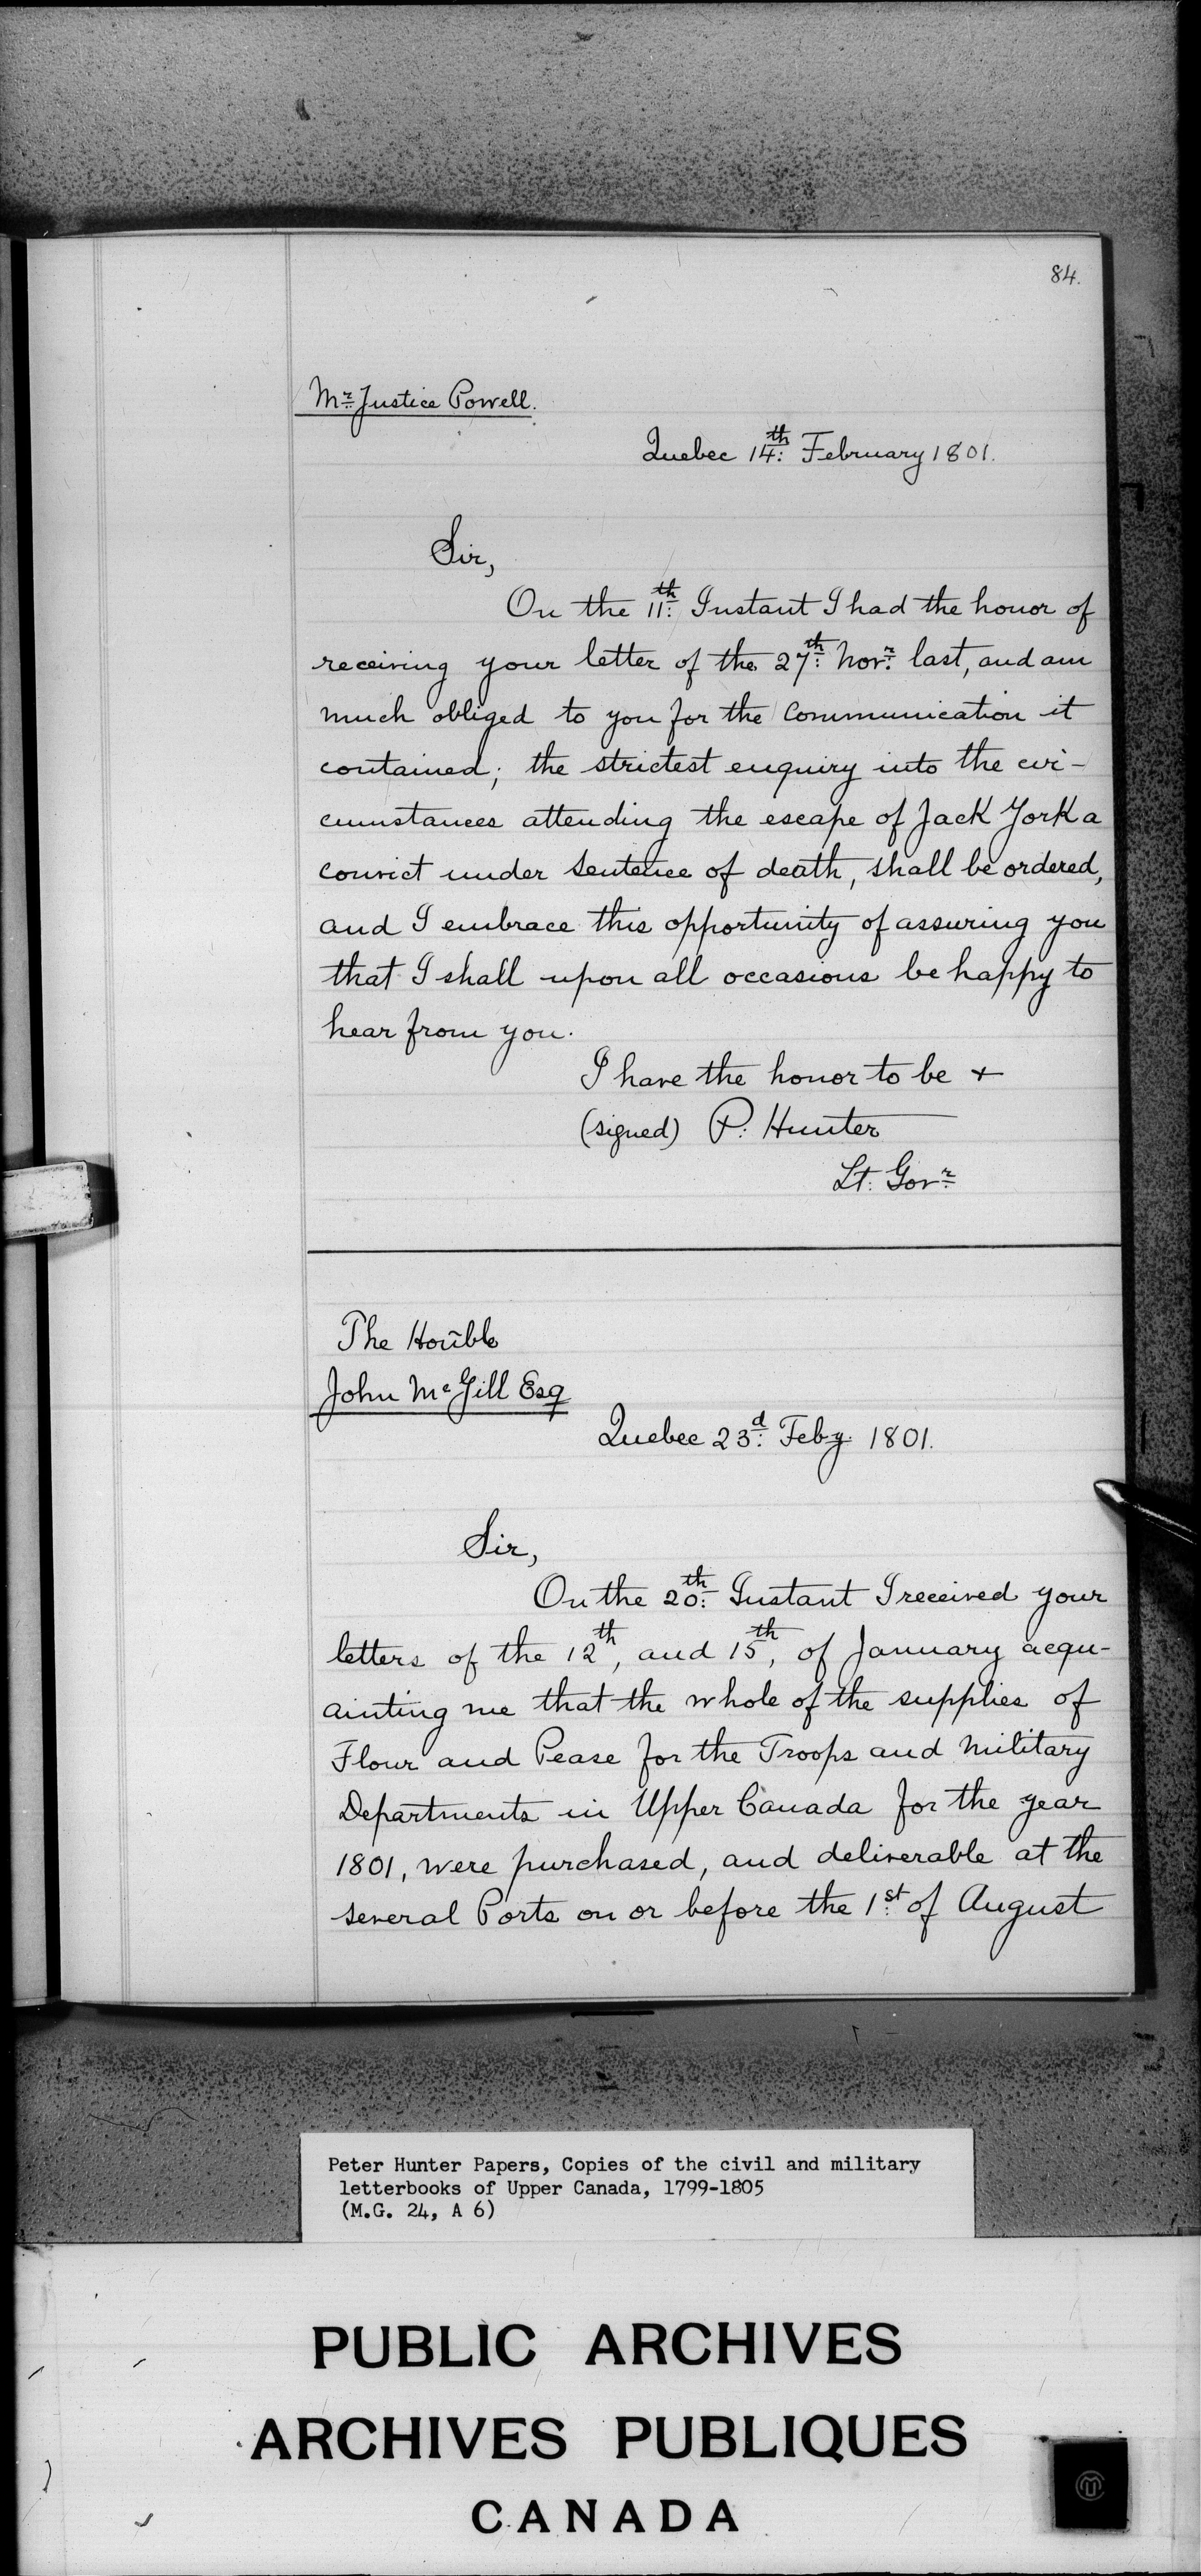 84.
Mr Justice Powell.
Quebec 14th: February 1801.
Sir,
On the 11th: Instant I had the honor of
receiving your letter of the 27th: Novr: last, and am
much obliged to you for the Communication it
contained; the strictest enquiry into the cir-
cumstances attending the escape of Jack York a
convict under sentence of death, shall be ordered,
and I embrace this opportunity of assuring you
that I shall upon all occasions be happy to
hear from you.
I have the honor to be +
(signed) P. Hunter
Lt. Govr
The Honble
John McGill Esq
Quebec 23d: Feby. 1801.
Sir,
On the 20th: Instant I received your
letters of the 12th, and 15th, of January acqu-
ainting me that the whole of the supplies of
Flour and Pease for the Troops and Military
Departments in Upper Canada for the year
1801, were purchased, and deliverable at the
several Ports on or before the 1st: of August
Peter Hunter Papers, Copies of the civil and military
letterbooks of Upper Canada, 1799-1805
(M.G. 24, A 6)
PUBLIC ARCHIVES
ARCHIVES PUBLIQUES
CANADA